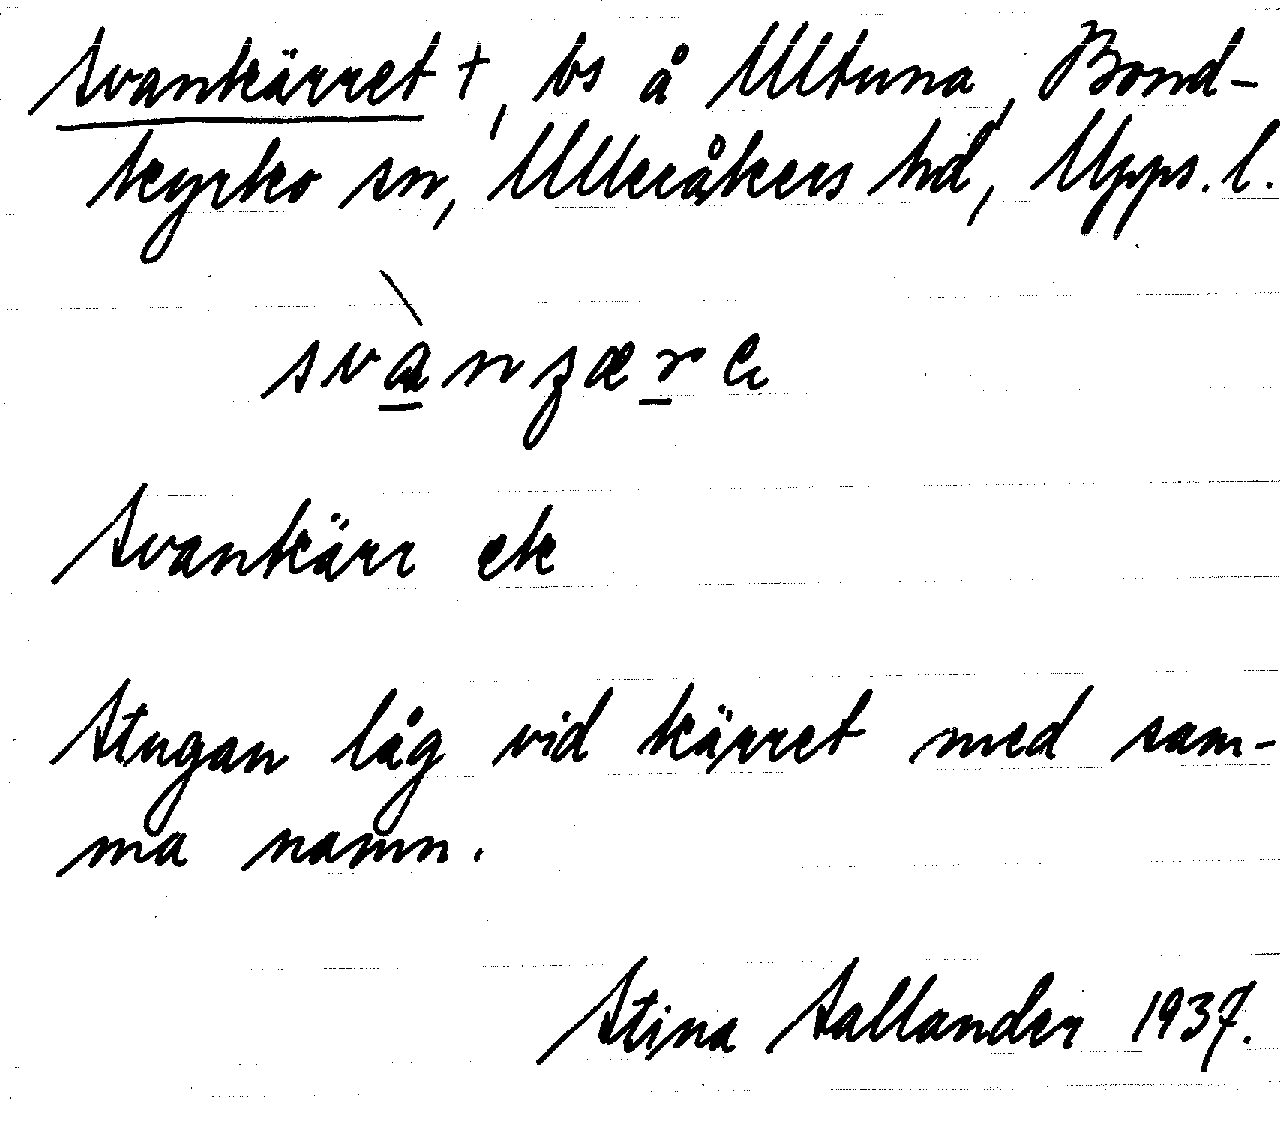 Svankärret †, bs å Ultuna, Bond-
kyrko sn, Ulleråkers hd, Upps. l.
svànzære
Svankärr ek
Stugan låg vid kärret med sam-
ma namn.
Stina Sallander 1937.